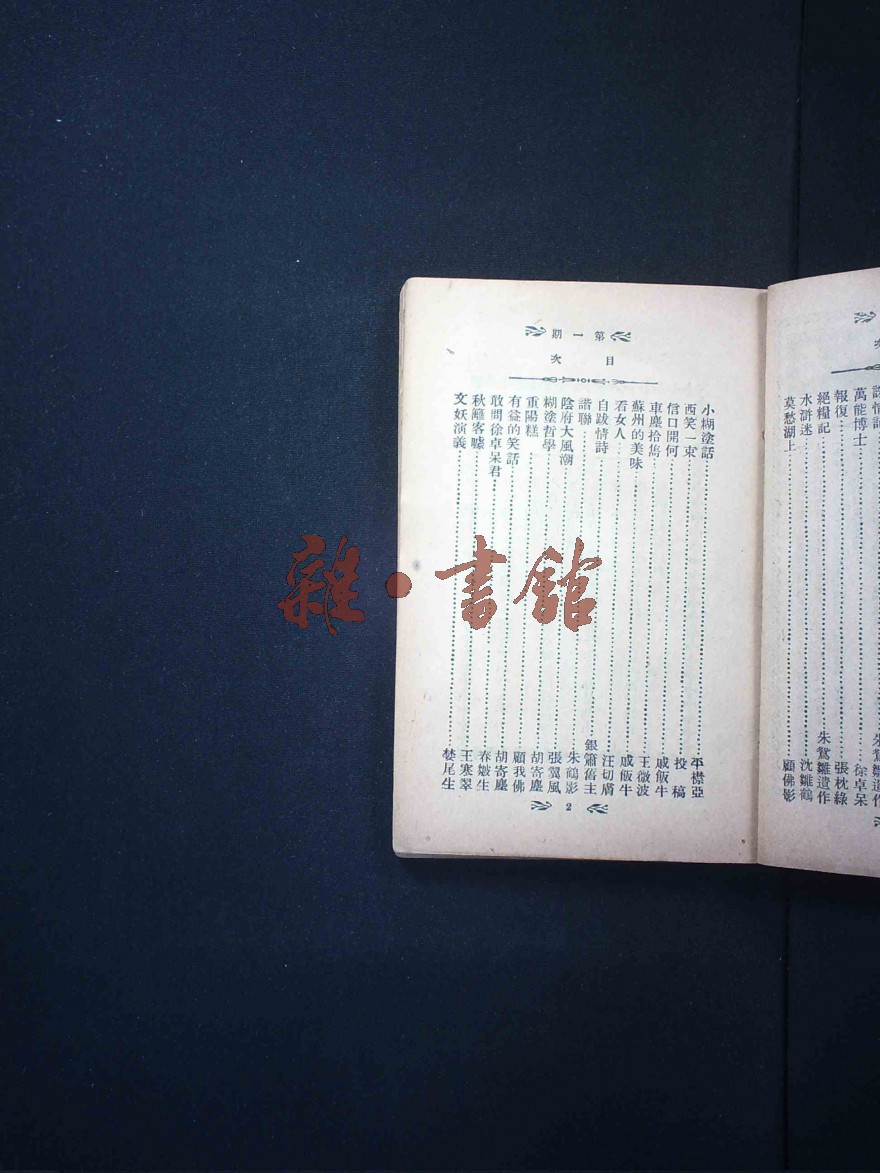 次
情詩 朱鴛雛遺作
萬能博士 徐卓呆
報復 張枕綠
絕糧記 朱鴛雛遺作
水滸迷 沈雛鶴
莫愁湖上 顧佛影
第一期
目次
小糊塗話 平襟亞
西笑一束 投稿
信口開何 戚飯牛
車塵拾雋 王薇波
蘇州的美味 戚飯牛
看女人 汪切膚
自跋情詩 銀簫舊主
諧聯 朱鶴影
陰府大風潮 張翼風
糊塗哲學 胡寄塵
重陽糕 顧我佛
有益的笑話 胡寄塵
敢問徐卓呆君 春皺生
秋籬客噱 王寒翠
文妖演義 婪尾生
2
雜·書館